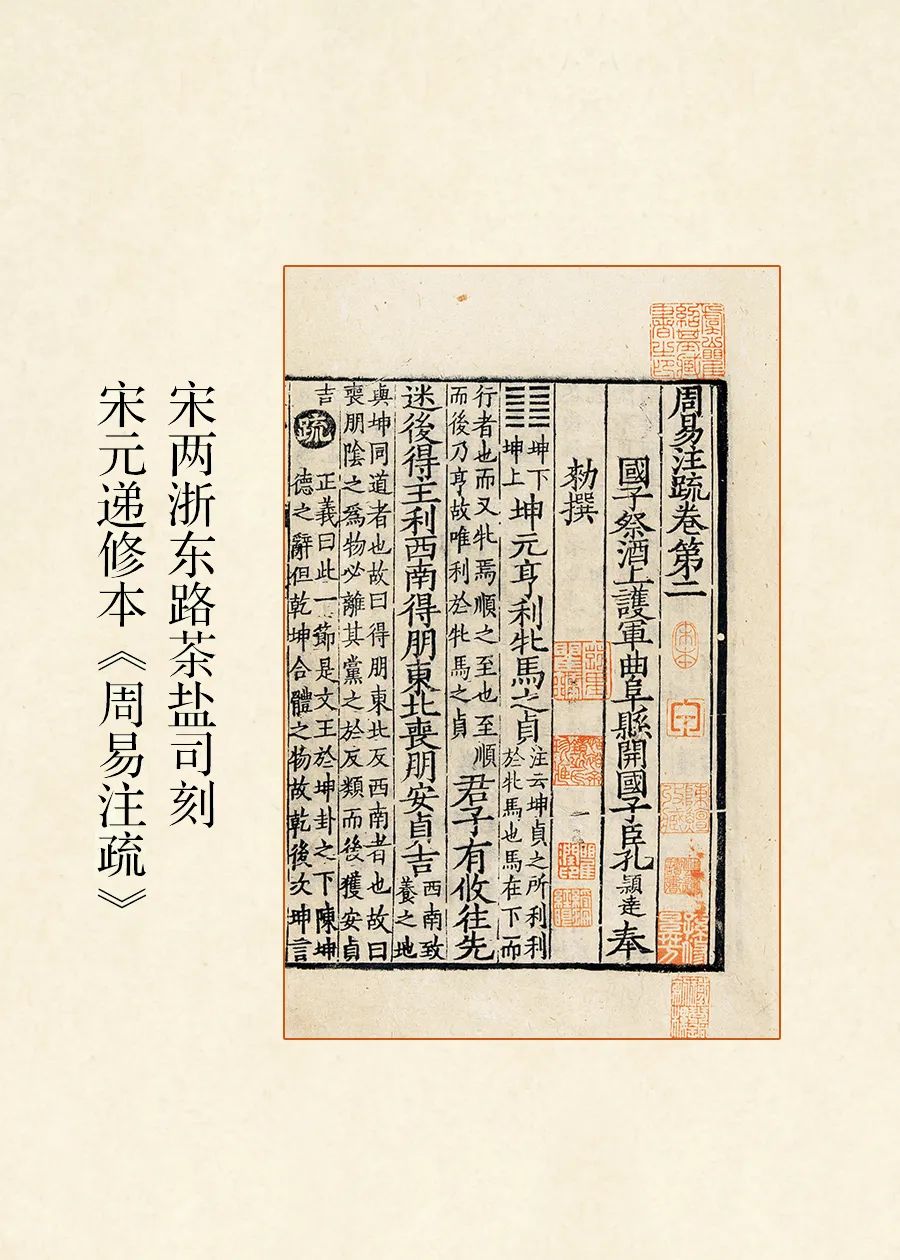 周易注疏卷第二
國子祭酒上護軍曲阜縣開國子臣孔穎達奉
勑撰
䷁坤下坤上坤元亨利牝馬之貞注云坤貞之所利利於牝馬也馬在下而
行者也而又牝焉順之至也至順而後乃亨故唯利於牝馬之貞君子有攸往先
迷後得主利西南得朋東北喪朋安貞吉西南致養之地
與坤同道者也故曰得朋東北反西南者也故曰
喪朋陰之爲物必離其黨之於反類而後獲安貞
吉疏正義曰此一節是文王於坤卦之下陳坤
德之辭但乾坤合體之物故乾後次坤言
宋本
宋两浙东路茶盐司刻
宋元递修本《周易注疏》